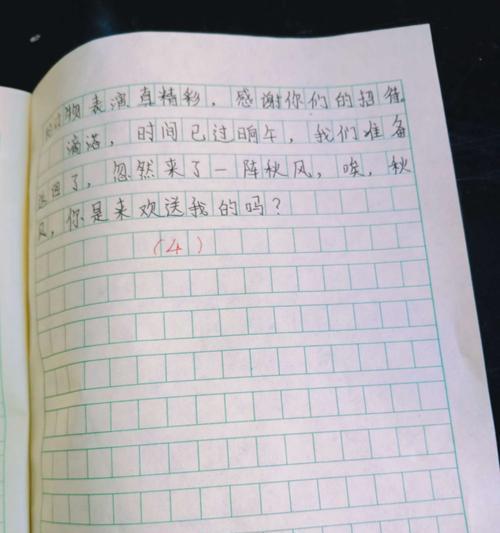 物表演真精彩，感谢你们的招待。
滴活，时间已过晌午，我们准备
返回了，忽然来了一阵秋风，唉，秋
风，你是来欢送我的吗？
（4）